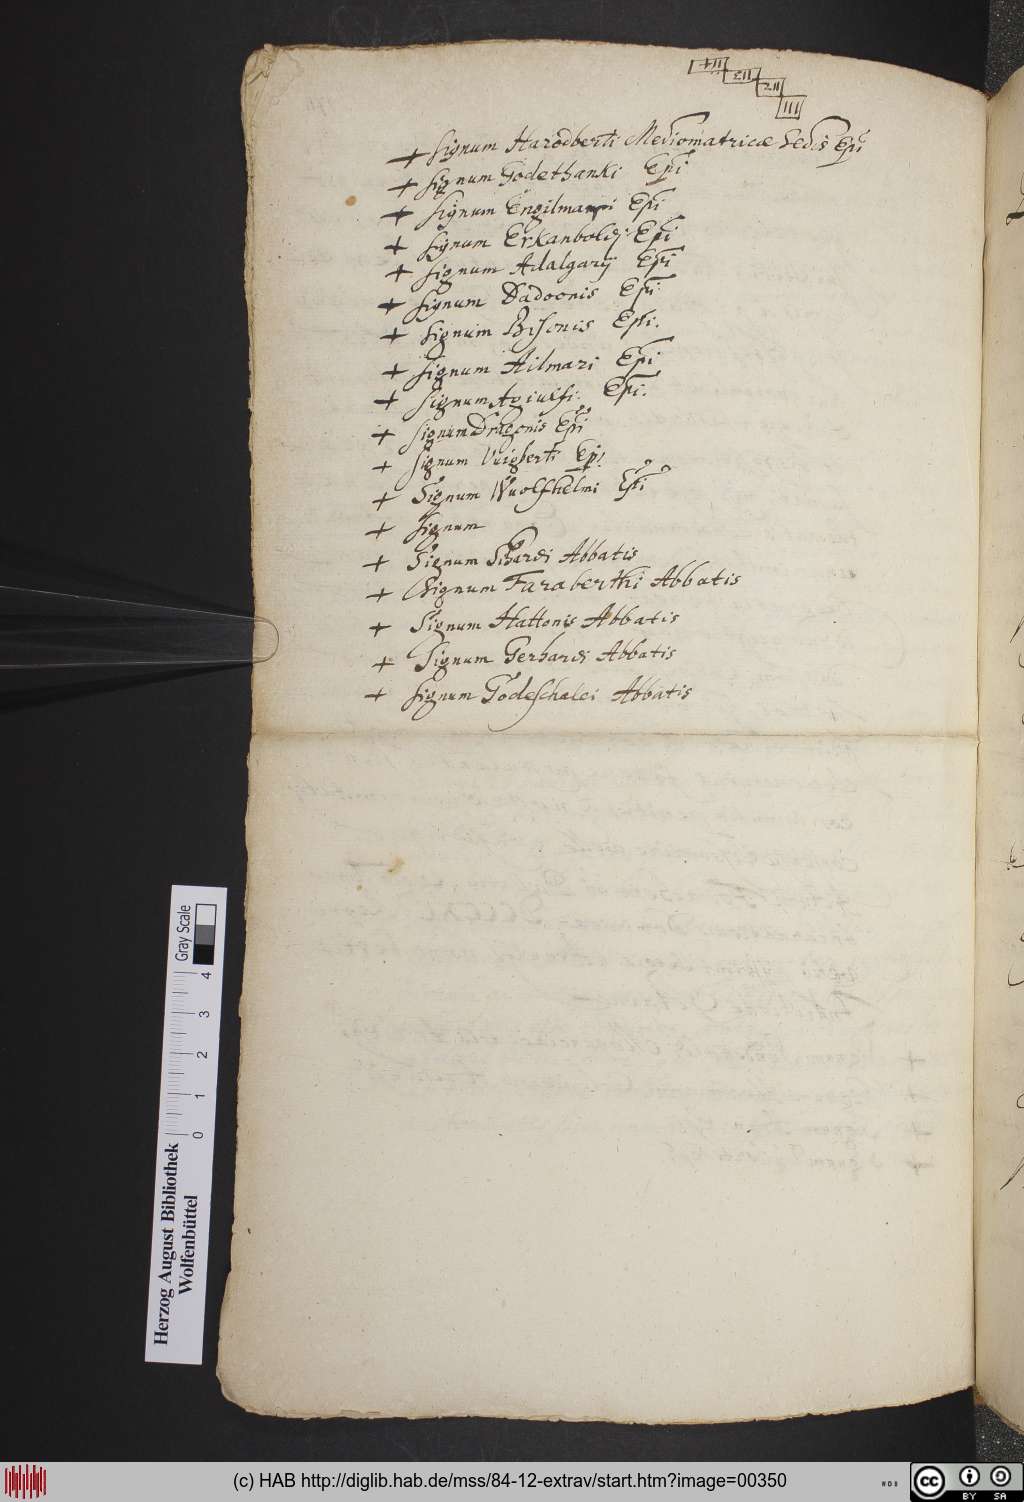 114
113
112
111
+ Signum Harodberti Mediomatricæ Sedis Epi
+ Signum Godethanki Epi
+ Signum Engilmari Epi
+ Signum Erkanboldi Epi
+ Signum Adalgarij Epi
+ Signum Dadoonis Epi.
+ Signum Bisonis Epi.
+ Signum Ailmari Epi
+ Signum Agiulfi. Epi.
+ Signum Dragonis Epi
+ Signum Vuigberti Epi
+ Signum Wuolfhelmi Epi
+ Signum
+ Signum Sihardi Abbatis
+ Signum Faraberthi Abbatis
+ Signum Hattonis Abbatis
+ Signum Gerhardi Abbatis
+ Signum Godeschalci Abbatis
Herzog August Bibliothek
Wolfenbüttel
0 1 2 3 4
Gray Scale
(c) HAB http://diglib.hab.de/mss/84-12-extrav/start.htm?image=00350
cc BY SA